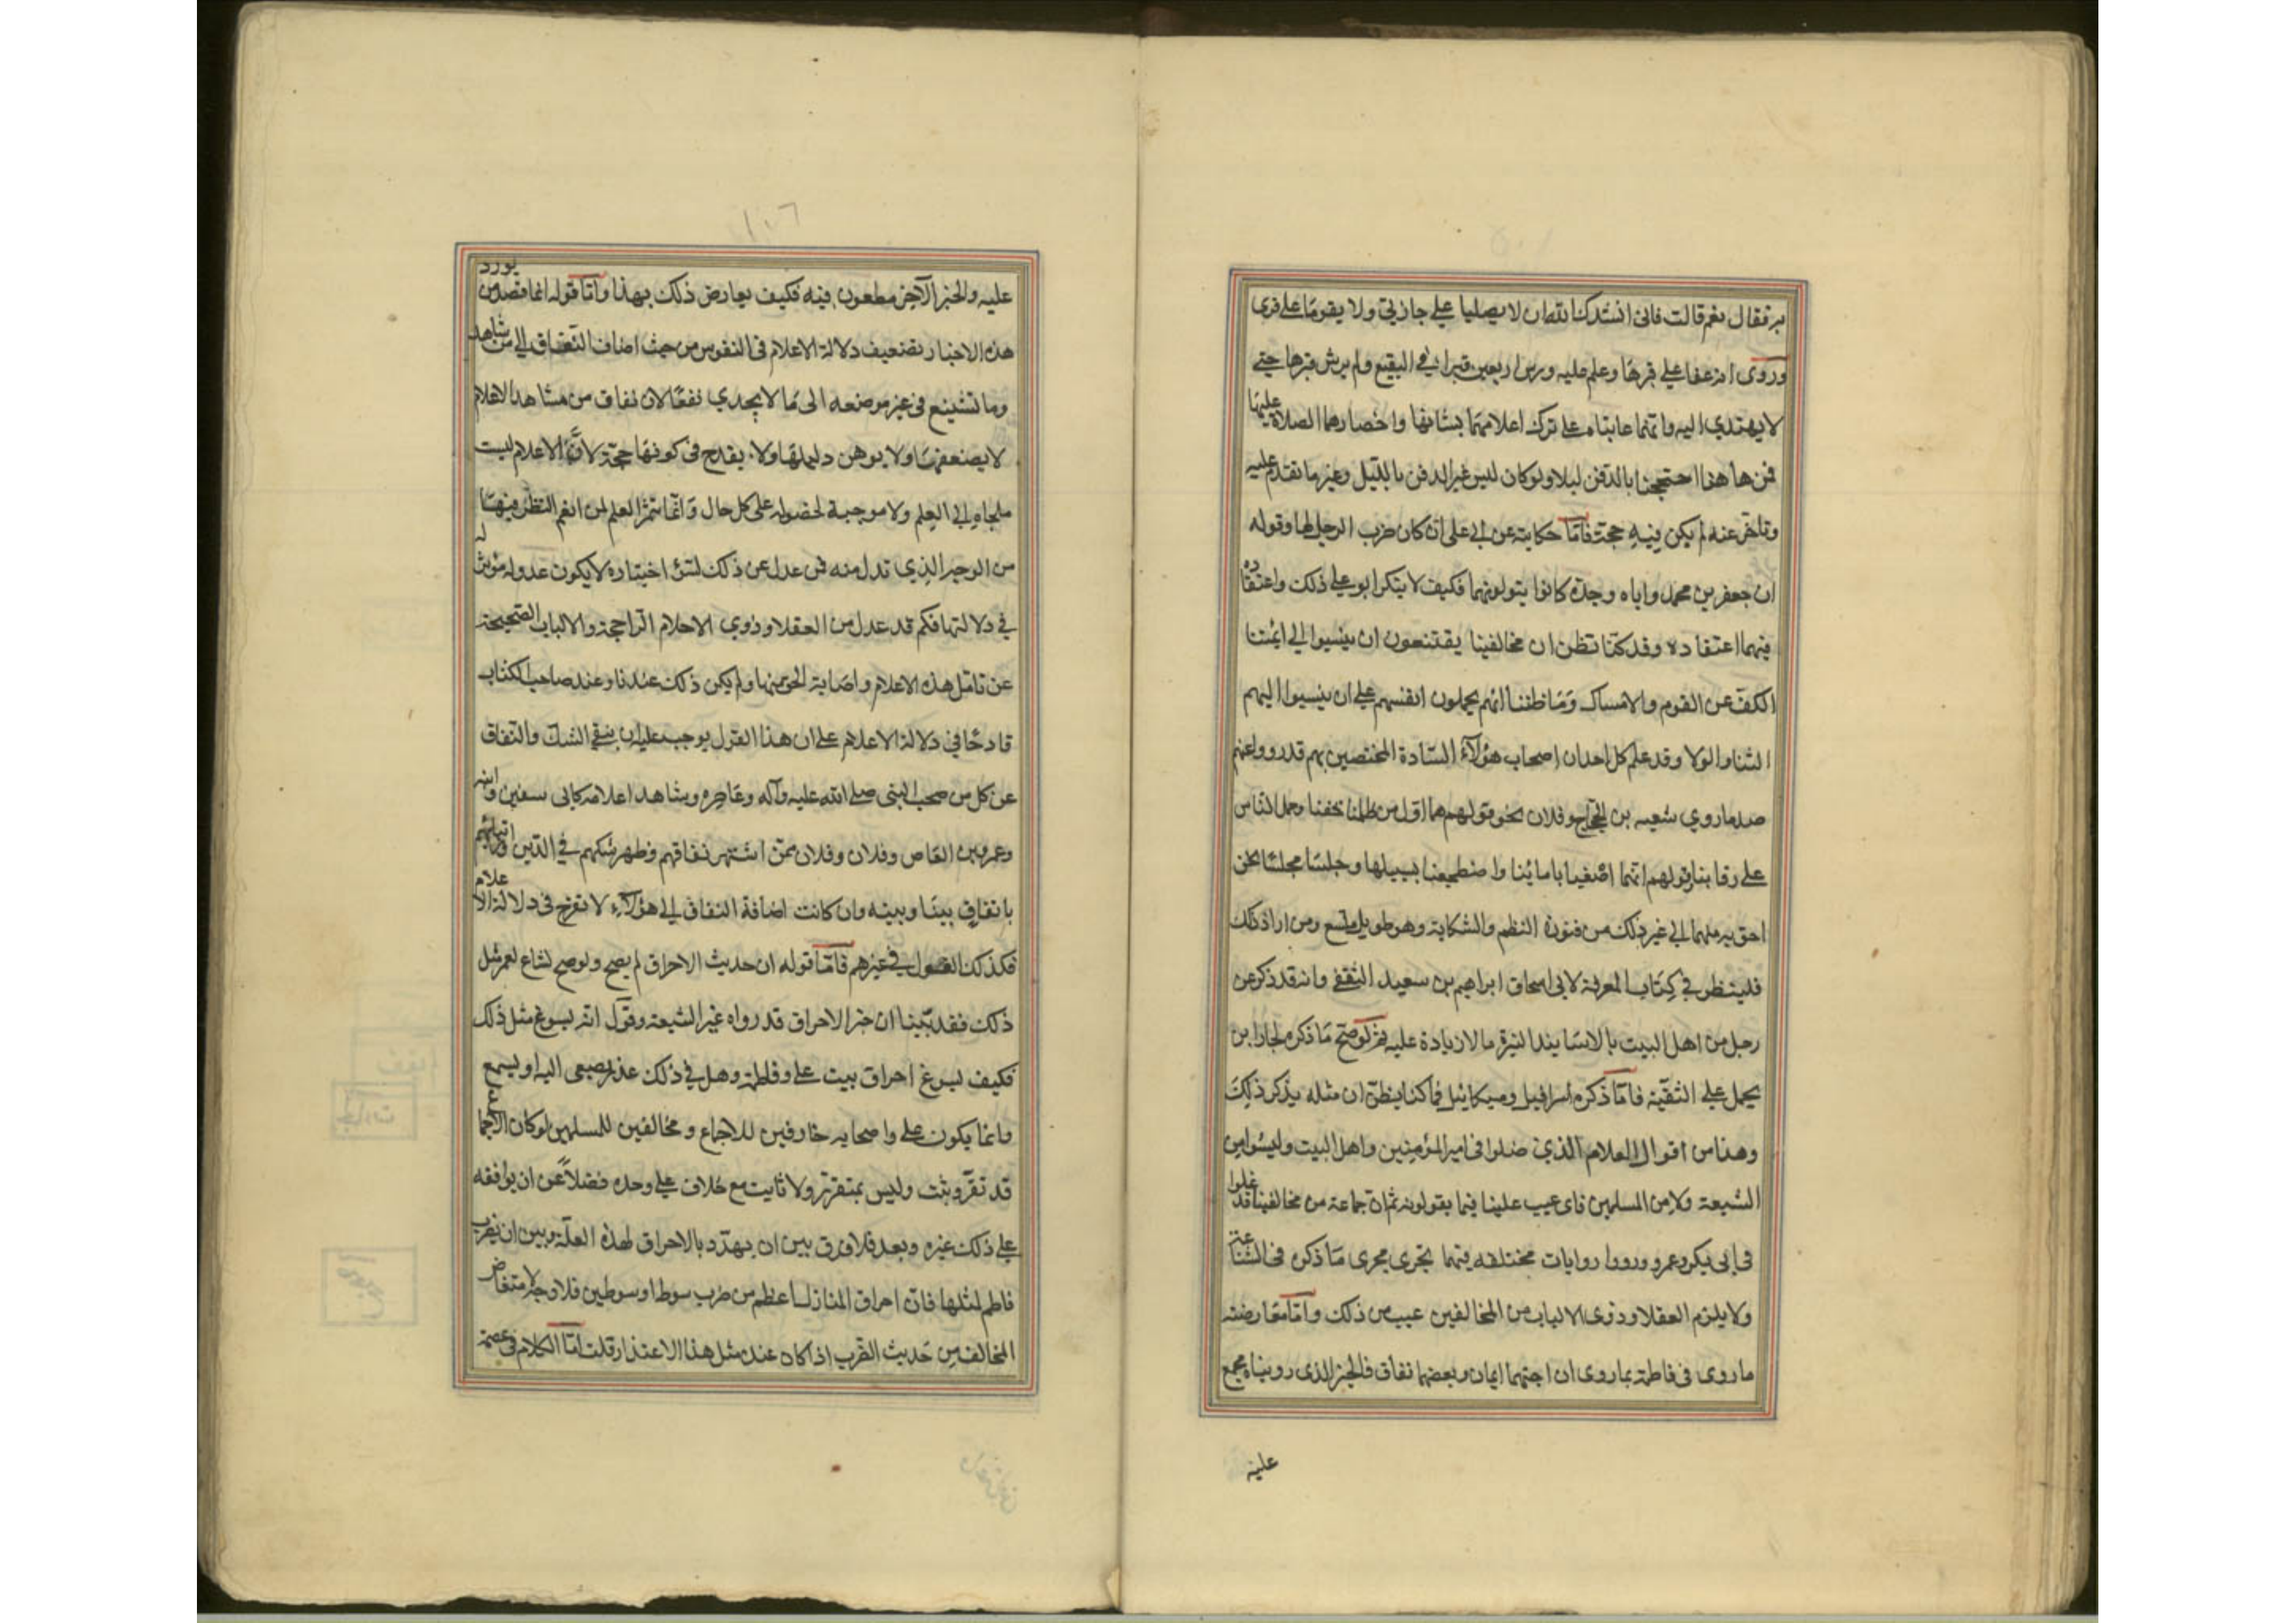 بر فقال نعم قالت فانى انشدكما الله ان لا يصليا على جنازتى ولا يقوما على قبرى
وروى انه عفا على قبرها وعلم عليه ورش اربعين قبرا فى البقيع ولم يرش قبرها حتى
لا يهتدي اليه وانهما عاتباه على ترك اعلامهما بشانها واحضارهما الصلاة عليها
فمن هاهنا احتججنا بالدفن ليلا ولو كان ليس غير الدفن بالليل وغير ما تقدم عليه
وتاخر عنه لم يكن فيه حجة فامّا حكايته عن ابى على ان كان ضرب الرجل لها وقوله
ان جعفر بن محمد واباه وجده كانوا يتولونهما فكيف لا ينكر ابو على ذلك واعتقاده
فيهما اعتقاده وقد كنا نظن ان مخالفينا يقتنعون ان ينسبوا الى ائمتنا
الكف عن القوم والامساك وما ظننا انهم يحملون انفسهم على ان ينسبوا اليهم
الثنا والولا وقد علم كل احد ان اصحاب هؤلآء السّادة المختصين بهم قد رووا عنهم
ضد ما روي شعبه بن الحجاج وفلان نحو قولهم هما اول من ظلمنا حقنا وحمل الناس
على رقابنا وقولهم انهما اصغيا بامائنا واضطجعا بسبيلها وجلسا مجلسا نحن
احق به منهما الى غير ذلك من فنون النظم والشكاية وهو طويل متسع ومن اراد ذلك
فلينظر في كتاب المعرفة لابى اسحاق ابراهيم بن سعيد الثقفى وانه قد ذكر عن
رجل من اهل البيت بالاسانيد النيرة ما لا زيادة عليه ثم لو صح ما ذكره لجاز ان
يحمل على التقيّة فامّا ذكره اسرافيل وميكائيل فما كنا نظن ان مثله يذكر ذلك
وهذا من اقوال الغلام الذين ضلوا فى امير المؤمنين واهل البيت وليسوا من
الشيعة ولا من المسلمين فاى عيب علينا فيما يقولونه ثم ان جماعة من مخالفينا قد غلوا
فى ابى بكر وعمر ورووا روايات مختلقه فيهما تجرى مجرى ما ذكره فى الشناعة
ولا يلزم العقلا وذوى الالباب من المخالفين عيب من ذلك وامّا معارضته
ما روى فى فاطمة بما روى ان احبهما ايمان وبغضهما نفاق فالخبر الذى رويناه مجمع
عليه
١٠٦
عليه والخبر الآخر مطعون فيه فكيف يعارض ذلك بهذا وامّا قوله انما قصد من يورد
هذه الاخبار تضعيف دلالة الاعلام فى النفوس من حيث اضاف النفاق الى من شاهد
وما تشينع فى غير موضعه الى ما لا يجدي نفعًا لان نفاق من مشاهد الاعلام
لا يضعفها ولا يوهن دليلها ولا يقدح فى كونها حجّة لانّ الاعلام ليست
ملجاه الى العلم ولا موجبة لحصوله على كل حال وانّما تثمر العلم لمن انعم النظر فيها
من الوجه الذى تدل منه فمن عدل عن ذلك لسؤ اختياره لا يكون عدوله مؤثرا له
في دلالتها فكم قد عدل من العقلا وذوي الاحلام الراجحة والالباب الصحيحة
عن تامل هذه الاعلام واصابة الحق منها ولم يكن ذلك عندنا وعند صاحب الكتاب
قادحًا في دلالة الاعلام على ان هذا القول يوجب عليه ان ينفى الشك والنفاق
عن كل من صحب النبى صلى الله عليه وآله وعاصره وشاهد اعلامه كابى سفين وابنه
وعمرو بن العاص وفلان وفلان ممّن اشتهر نفاقهم وظهر شكهم في الدّين وارتيابهم
باتفاق بيننا وبينه وان كانت اضافة النفاق الى هؤلآء لا تقدح فى دلالة الاعلام
فكذلك القول فى غيرهم فامّا قوله ان حديث الاحراق لم يصح ولو صح لساغ لعمر مثل
ذلك فقد بيّنا ان خبر الاحراق قد رواه غير الشيعة وقول انه ليسوغ مثل ذلك
فكيف يسوغ احراق بيت على وفاطمة وهل في ذلك عذر يصغى اليه او يسمع
وانما يكون على واصحابه خارقين للاجماع ومخالفين للمسلمين لو كان الاجماع
قد تقرر وثبت وليس بمتقرر ولا ثابت مع خلاف على وحده فضلاً عن ان يوافقه
على ذلك غيره وبعد فلا فرق بين ان يهدّد بالاحراق لهذه العلّة وبين ان يضرب
فاطم لمثلها فانّ احراق المنازل اعظم من ضرب سوط او سوطين فلا وجه لامتعاض
المخالفين حديث الضرب اذا كان عنده مثل هذا الاعتذار قلت امّا الكلام فى عصمة